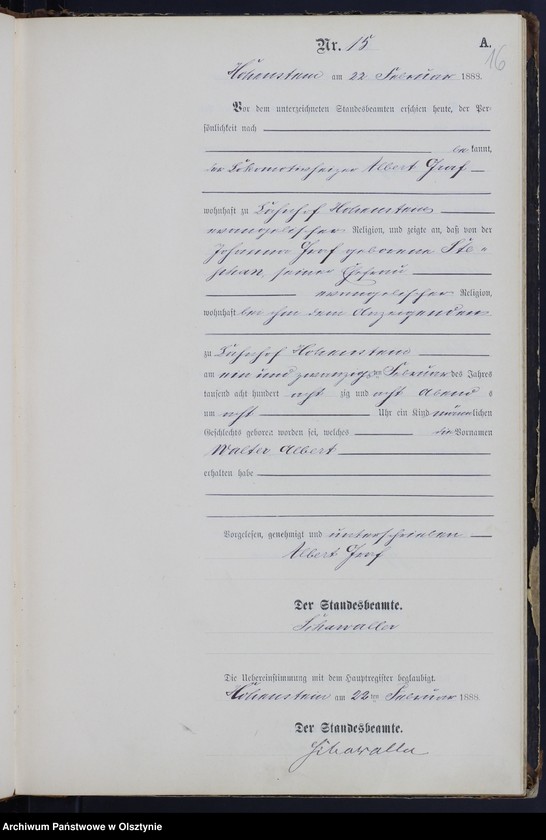 Nr. 15
A.
16
Hohenstein am 22 Februar 1888.
Vor dem unterzeichneten Standesbeamten erschien heute, der Per-
sönlichkeit nach
bekannt,
der Lokomotivheizer Albert Graf
wohnhaft zu Bahnhof Hohenstein
evangelischer Religion, und zeigte an, daß von der
Johanna Graf geborene Ste-
phan, seiner Ehefrau
evangelischer Religion,
wohnhaft bei ihm dem Anzeigenden
zu Bahnhof Hohenstein
am ein und zwanzigsten Februar des Jahres
tausend acht hundert achtzig und acht Abends
um acht Uhr ein Kind männlichen
Geschlechts geboren worden sei, welches die Vornamen
Walter Albert
erhalten habe
Vorgelesen, genehmigt und unterschrieben
Albert Graf
Der Standesbeamte.
Die Uebereinstimmung mit dem Hauptregister beglaubigt.
Hohenstein am 22ten Februar 1888.
Der Standesbeamte.
Archiwum Państwowe w Olsztynie